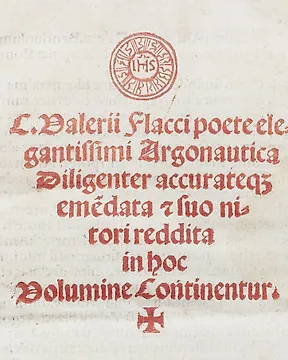 IHS
C. Valerii Flacci poete ele-
gantissimi Argonautica
Diligenter accurateqꝫ
emēdata ⁊ suo ni-
tori reddita
in hoc
Volumine Continentur.